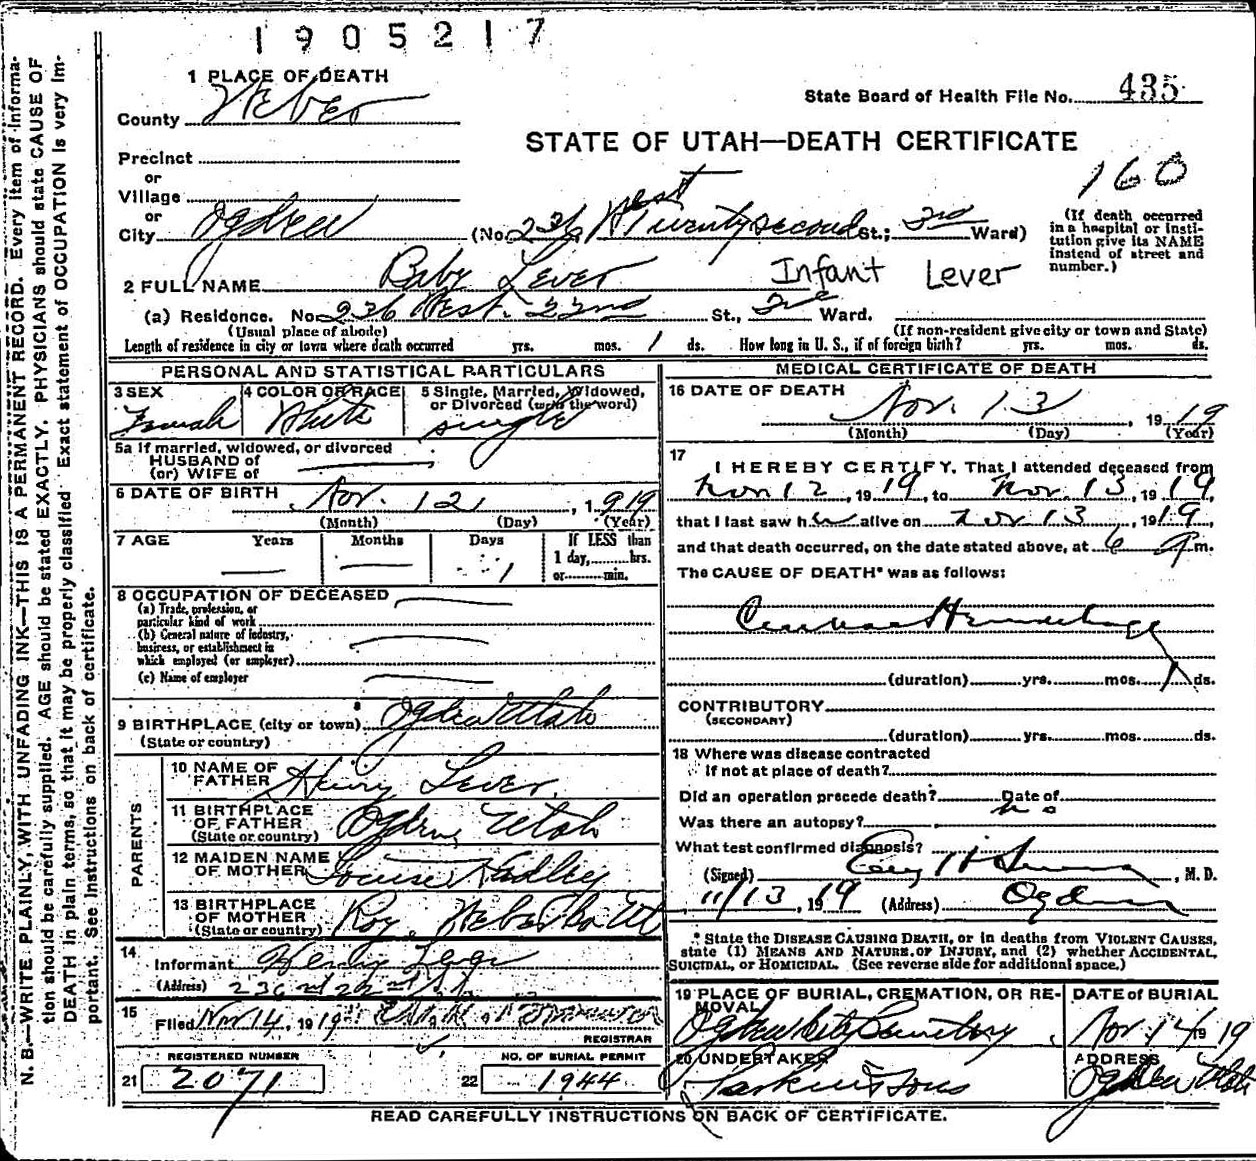 1905217
1 PLACE OF DEATH
State Board of Health File No. 435
County Weber
STATE OF UTAH—DEATH CERTIFICATE
160
Precinct
or
Village
or
City Ogden (No. 236 West Twenty second St.; 3rd Ward)
(If death occurred in a hospital or institution give its NAME instead of street and number.)
2 FULL NAME Baby Lever Infant Lever
(a) Residence. No. 236 West 22nd St., 3rd Ward.
(Usual place of abode) (If non-resident give city or town and State)
Length of residence in city or town where death occurred yrs. mos. 1 ds. How long in U. S., if of foreign birth? yrs. mos. ds.
PERSONAL AND STATISTICAL PARTICULARS
3 SEX Female
4 COLOR OR RACE White
5 Single, Married, Widowed, or Divorced (write the word) single
5a If married, widowed, or divorced
HUSBAND of
(or) WIFE of
6 DATE OF BIRTH Nov. 12, 1919
(Month) (Day) (Year)
7 AGE Years Months Days 1
If LESS than
1 day, hrs.
or min.
8 OCCUPATION OF DECEASED
(a) Trade, profession, or
particular kind of work
(b) General nature of industry,
business, or establishment in
which employed (or employer)
(c) Name of employer
9 BIRTHPLACE (city or town) Ogden Utah
(State or country)
PARENTS
10 NAME OF FATHER Henry Lever
11 BIRTHPLACE OF FATHER Ogden, Utah
(State or country)
12 MAIDEN NAME OF MOTHER Louise Hadley
13 BIRTHPLACE OF MOTHER Roy, Weber Co Ut
(State or country)
14 Informant Henry Lever
(Address) 236 22nd
15 Filed Nov 14, 1919
REGISTRAR
REGISTERED NUMBER
21 2071
NO. OF BURIAL PERMIT
22 1944
MEDICAL CERTIFICATE OF DEATH
16 DATE OF DEATH Nov. 13, 1919
(Month) (Day) (Year)
17
I HEREBY CERTIFY, That I attended deceased from
Nov 12, 1919, to Nov. 13, 1919,
that I last saw her alive on Nov 13, 1919,
and that death occurred, on the date stated above, at 6 m.
The CAUSE OF DEATH* was as follows:
Hemorrhage
(duration) yrs. mos. 1 ds.
CONTRIBUTORY
(SECONDARY)
(duration) yrs. mos. ds.
18 Where was disease contracted
if not at place of death?
Did an operation precede death? Date of
Was there an autopsy? no
What test confirmed diagnosis?
(Signed) , M. D.
11/13, 1919 (Address) Ogden
* State the DISEASE CAUSING DEATH, or in deaths from VIOLENT CAUSES,
state (1) MEANS AND NATURE OF INJURY, and (2) whether ACCIDENTAL,
SUICIDAL, or HOMICIDAL. (See reverse side for additional space.)
19 PLACE OF BURIAL, CREMATION, OR REMOVAL
Ogden City Cemetery
DATE of BURIAL
Nov. 14 1919
20 UNDERTAKER
Larkin & Sons
ADDRESS
Ogden Utah
READ CAREFULLY INSTRUCTIONS ON BACK OF CERTIFICATE.
N. B.—WRITE PLAINLY, WITH UNFADING INK—THIS IS A PERMANENT RECORD. Every item of informa-
tion should be carefully supplied. AGE should be stated EXACTLY. PHYSICIANS should state CAUSE OF
DEATH in plain terms, so that it may be properly classified. Exact statement of OCCUPATION is very im-
portant. See instructions on back of certificate.